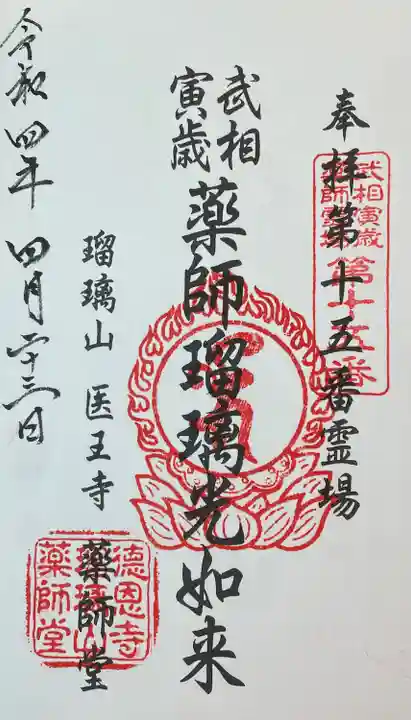 奉拝第十五番霊場
武相寅歳
薬師霊場
第十五番
武相
寅歳
薬師瑠璃光如来
瑠璃山 医王寺
薬師堂
徳恩寺
薬師堂
令和四年 四月二十三日